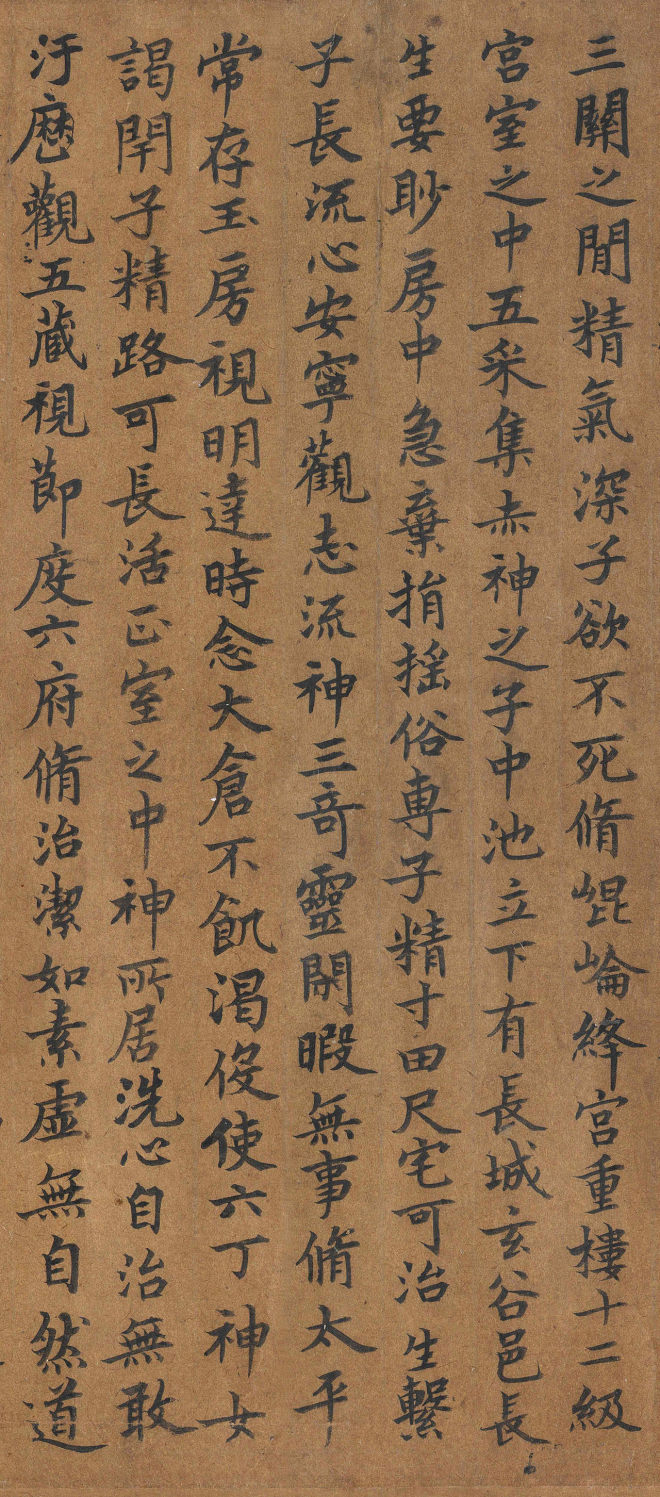 三關之閒精氣深子欲不死脩崐崘絳宫重樓十二級
宫室之中五采集赤神之子中池立下有長城玄谷邑長
生要眇房中急棄捐搖俗專子精寸田尺宅可治生繫
子長流心安寧觀志流神三奇靈閒暇無事脩太平
常存玉房視明達時念大倉不飢渴役使六丁神女
謁閇子精路可長活正室之中神所居洗心自治無敢
汙歷觀五藏視節度六府脩治潔如素虛無自然道